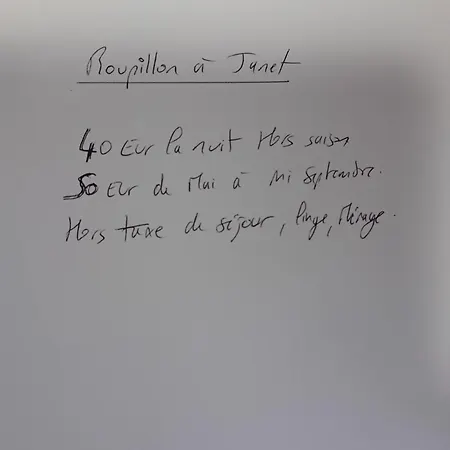 Roupillon à Janet
40 Eur la nuit Hors saison
50 Eur de Mai à mi Septembre.
Hors taxe de séjour, linge, Ménage.